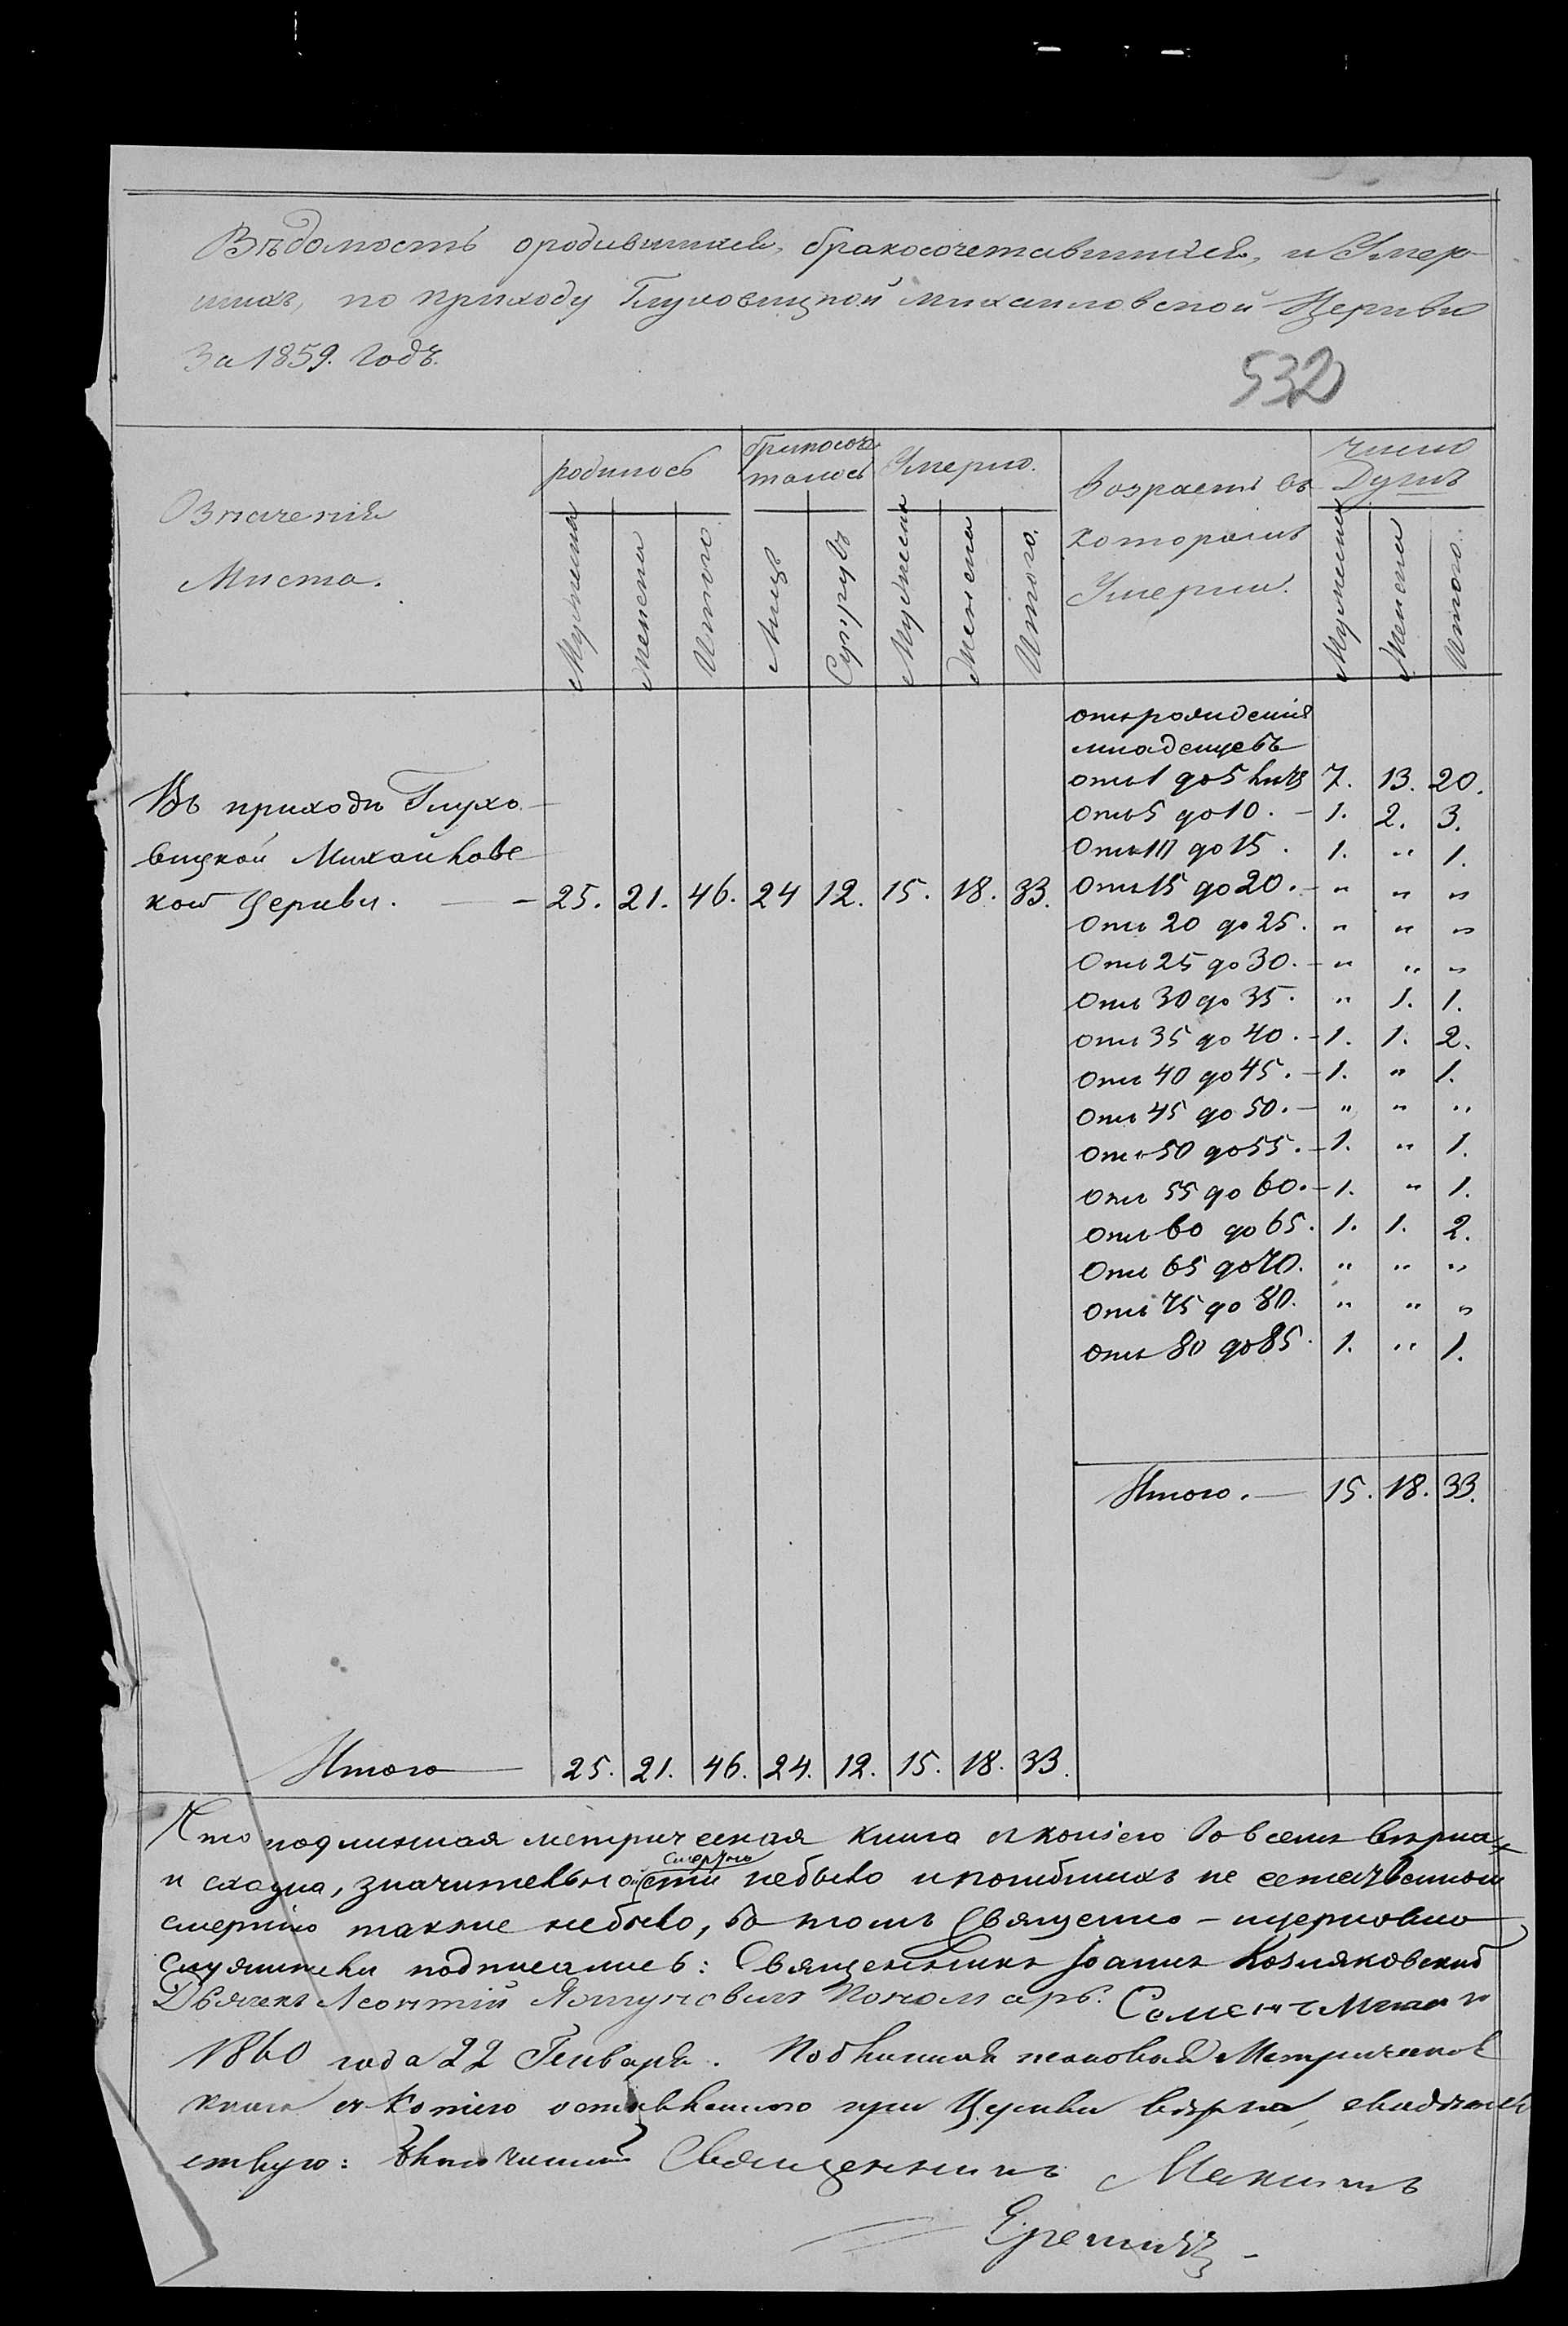 Вѣдомость ородившихся, бракосочетавшихся, и Умер-
шихъ, по приходу Глуховицкой михаиловской Церкви
За 1859. Годъ.
532
Означенія
Миста.
родилось
бракосоче
талось
Умерло.
Возрастъ въ
которомъ
Умерли.
число
Душъ
Мужеска
женска
Итого
Лицъ
Супругъ
Мужеска
Женска
Итого.
Мужеска
Женска
Итого.
отъ рожденія
младенцевъ
отъ 1 до 5 лѣтъ 7. 13. 20.
Отъ 5 до 10. – 1. 2. 3.
Отъ 10 до 15. 1. " 1.
Отъ 15 до 20. – " " "
Отъ 20 до 25. " " "
Отъ 25 до 30. – " " "
Отъ 30 до 35. " 1. 1.
Отъ 35 до 40. – 1. 1. 2.
Отъ 40 до 45. – 1. " 1.
Отъ 45 до 50. – " " "
Отъ 50 до 55. – 1. " 1.
Отъ 55 до 60. – 1. " 1.
Отъ 60 до 65. 1. 1. 2.
Отъ 65 до 70. " " "
Отъ 75 до 80. " " "
Отъ 80 до 85. 1. " 1.
Итого. — 15. 18. 33.
Въ приходи Глухо
вицкой Михайловс
кой Церкви. — – 25. 21. 46. 24 12. 15. 18. 33.
Итого 25. 21. 46. 24. 12. 15. 18. 33.
Что подлинная метрическая книга съ копіею вовсемъ вѣрна
и сходна, значительной смертно
сти небыло и погибшихъ не естественною
смертію также небыло, въ томъ Священно-церковно
служители подписались: Священникъ Іоаннъ Козляковский
Дьячекъ Леонтій Пономарь.
1860 года 22 Генваря. Подлинная Метрическая
книга съ копіею оставленною при Церкви вѣрна, свидѣтель
ствую: Благочинный Священникъ